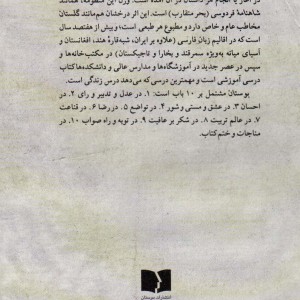 در آغاز یا انجام هر داستان در آن آمده است. وزن این منظومه، همانند
شاهنامهٔ فردوسی (بحر متقارب) است. این اثر درخشان هم‌مانند گلستان
مخاطب عام و خاص دارد و مطبوع هر طبعی است؛ و بیش از هفتصد سال
است که در اقالیم زبان فارسی (علاوه بر ایران، شبه‌قارهٔ هند، افغانستان و
آسیای میانه به‌ویژه سمرقند و بخارا و تاجیکستان) در مکتب‌خانه‌ها و
سپس در عصر جدید در آموزشگاه‌ها و مدارس عالی و دانشکده‌ها کتاب
درسی آموزشی است و مهم‌ترین درسی که می‌دهد درس زندگی است.
بوستان مشتمل بر ۱۰ باب است: ۱. در عدل و تدبیر و رای ۲. در
احسان ۳. در عشق و مستی و شور ۴. در تواضع ۵. در رضا ۶. در قناعت
۷. در عالم تربیت ۸. در شکر بر عافیت ۹. در توبه و راه صواب ۱۰. در
مناجات و ختم کتاب.
انتشارات دوستان